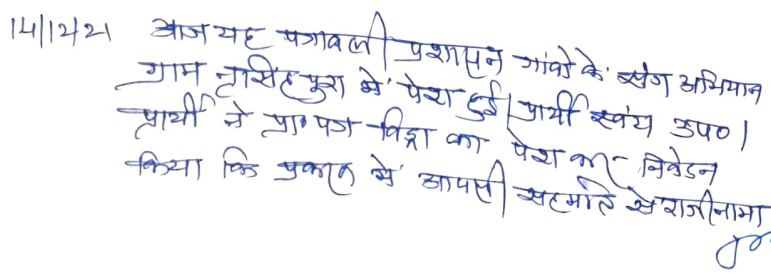 14/12/21 आज यह पत्रावली प्रशासन गांवो के संग अभियान
ग्राम नृसिंहपुरा में पेश हुई। प्रार्थी स्वंय उप०।
प्रार्थी ने प्रा० पत्र विड्रा का पेश कर निवेदन
किया कि प्रकरण में आपसी सहमति से राजीनामा